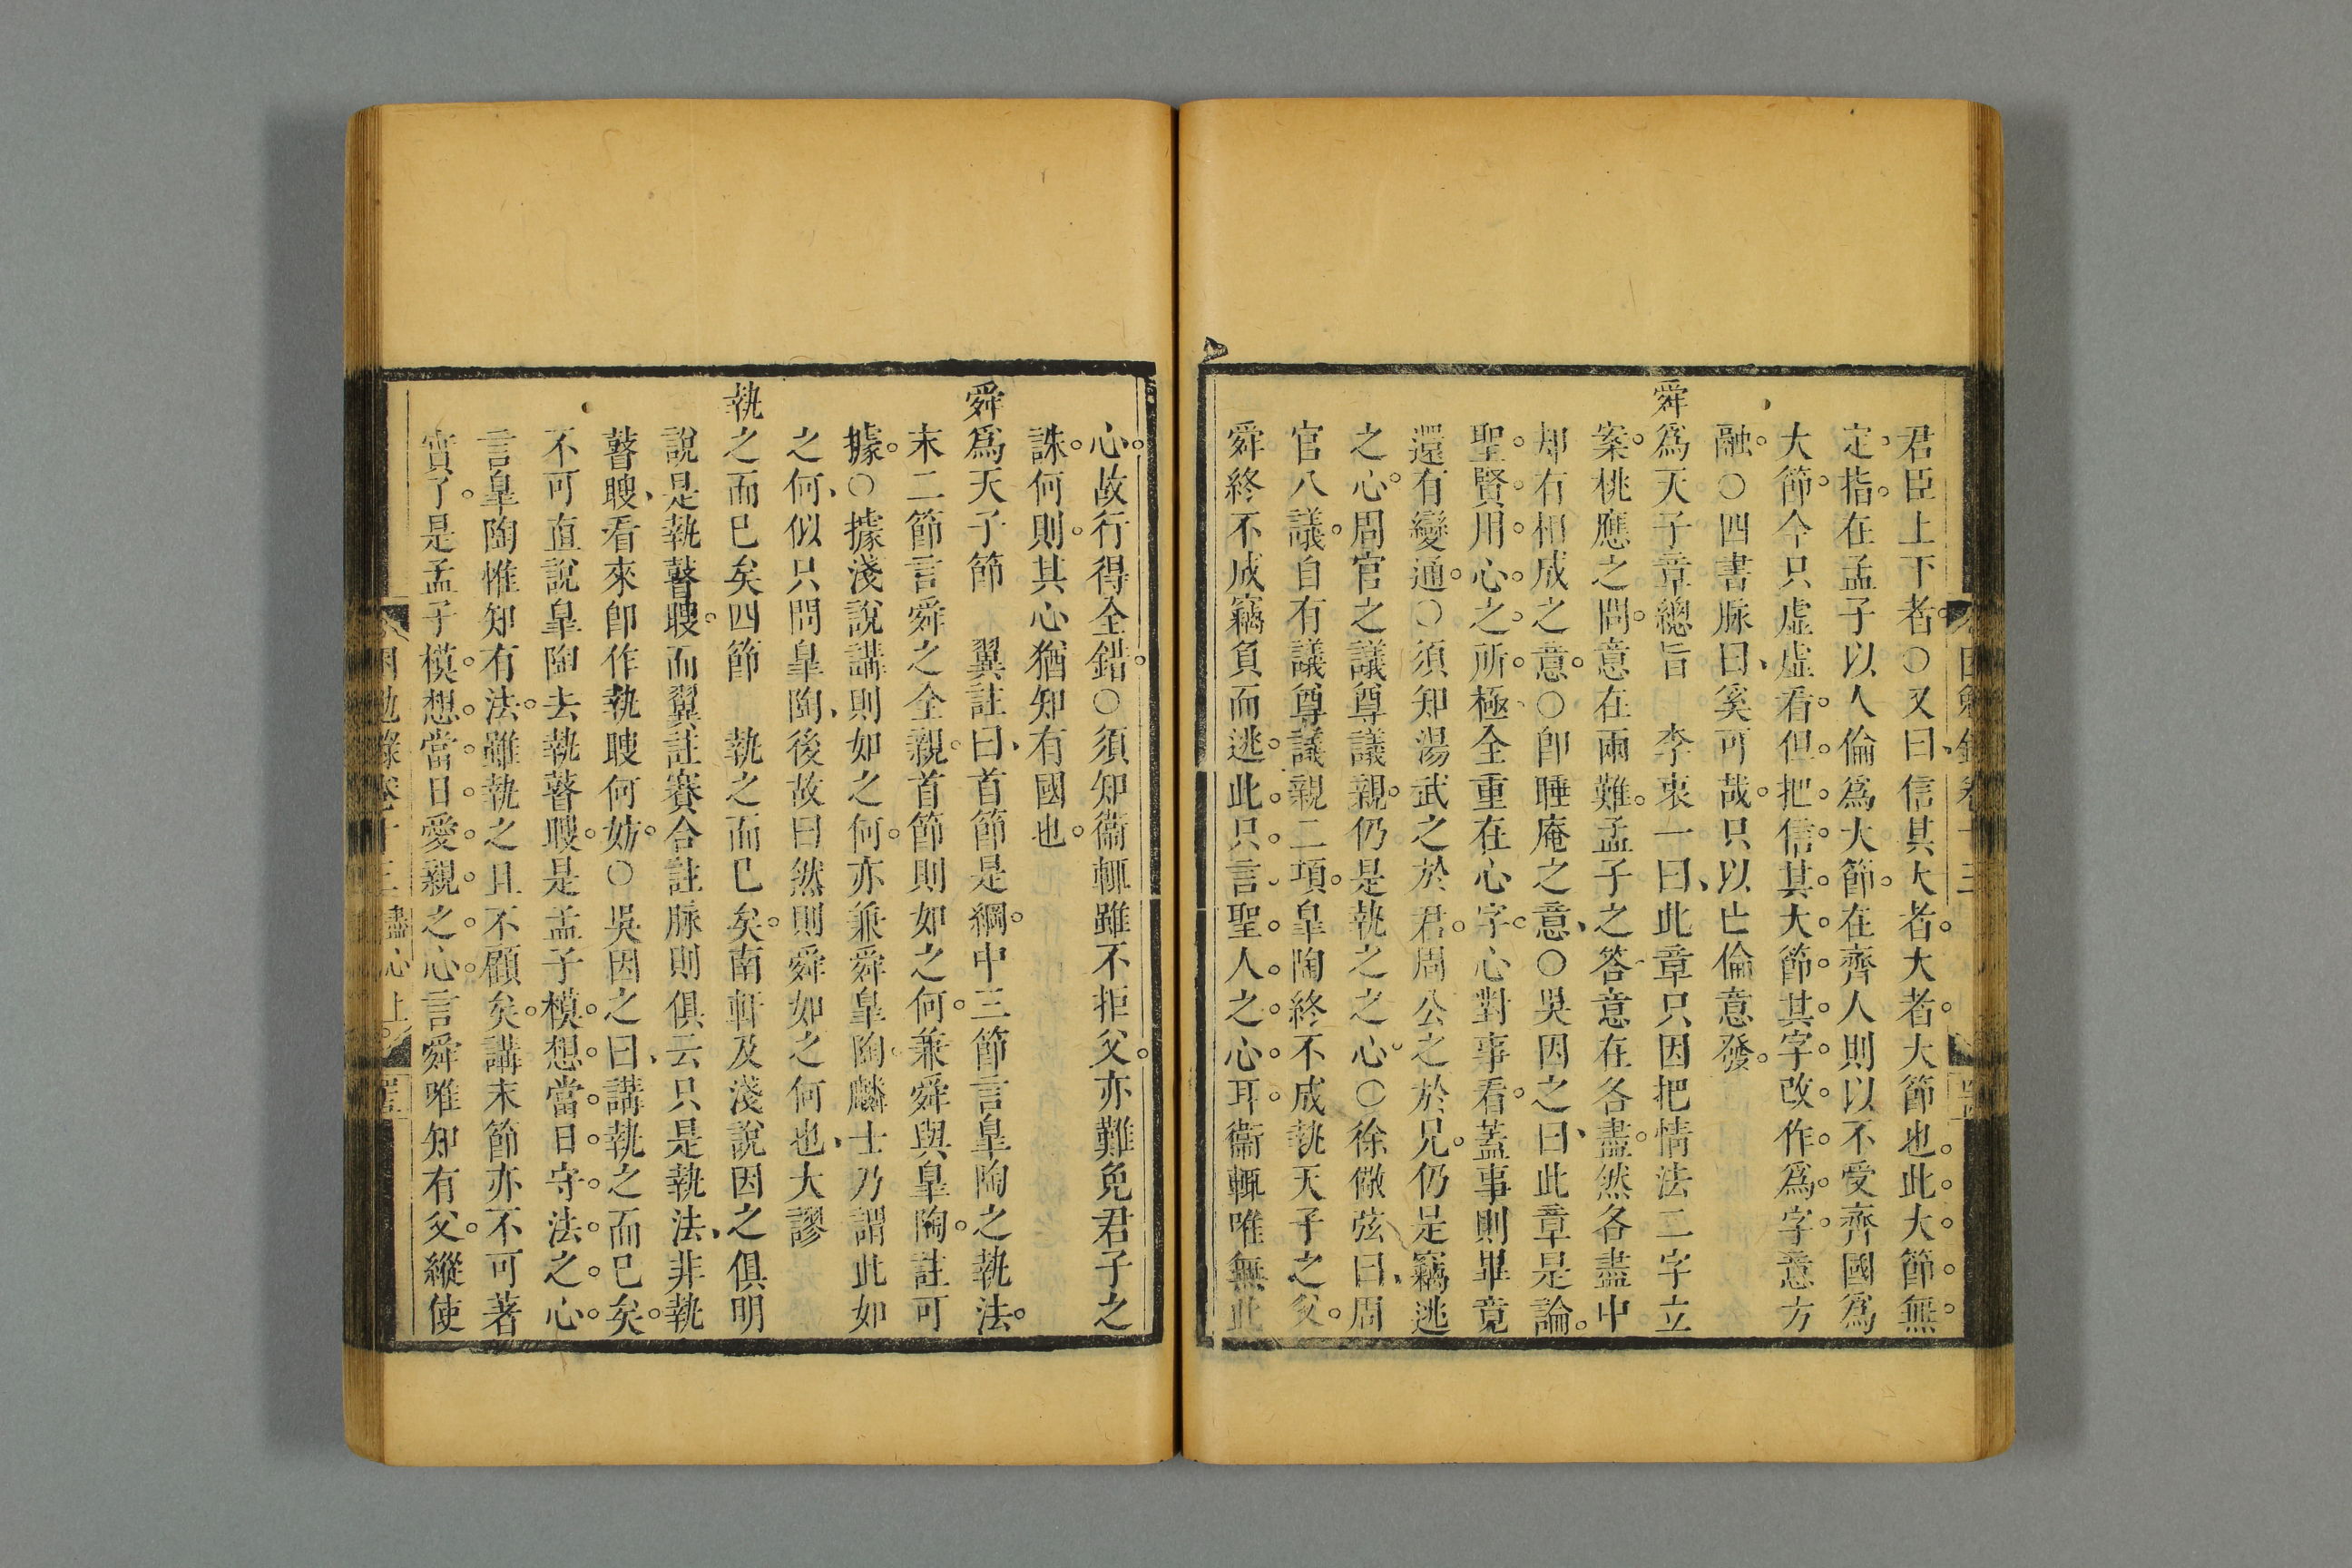 君臣上下者○又曰信其大者大者大節也此大節無
定指在孟子以人倫爲大節在齊人則以不受齊國爲
大節今只虛虛看但把信其大節其字改作爲字意方
融○四書脉曰奚可哉只以亡倫意發
舜爲天子章總旨　李衷一曰此章只因把情法二字立
案桃應之問意在兩難孟子之答意在各盡然各盡中
却有相成之意○卽睡庵之意○吳因之曰此章是論
聖賢用心之所極全重在心字心對事看蓋事則畢竟
還有變通○須知湯武之於君周公之於兄仍是竊逃
之心周官之議尊議親仍是執之之心○徐儆弦曰周
官八議自有議尊議親二項皐陶終不成執天子之父
舜終不成竊負而逃此只言聖人之心耳衞輒唯無此
心故行得全錯○須知衞輒雖不拒父亦難免君子之
誅何則其心猶知有國也
舜爲天子節　翼註曰首節是綱中三節言皐陶之執法
末二節言舜之全親首節則如之何兼舜與皐陶註可
據○據淺說講則如之何亦兼舜皐陶麟士乃謂此如
之何似只問皐陶後故曰然則舜如之何也大謬
執之而已矣四節　執之而已矣南軒及淺說因之俱明
說是執瞽瞍而翼註賽合註脉則俱云只是執法非執
瞽瞍看來卽作執瞍何妨○吳因之曰講執之而已矣
不可直說皐陶去執瞽瞍是孟子模想當日守法之心
言皐陶惟知有法雖執之且不顧矣講末節亦不可著
實了是孟子模想當日愛親之心言舜唯知有父縱使
困勉錄卷十三 盡心上